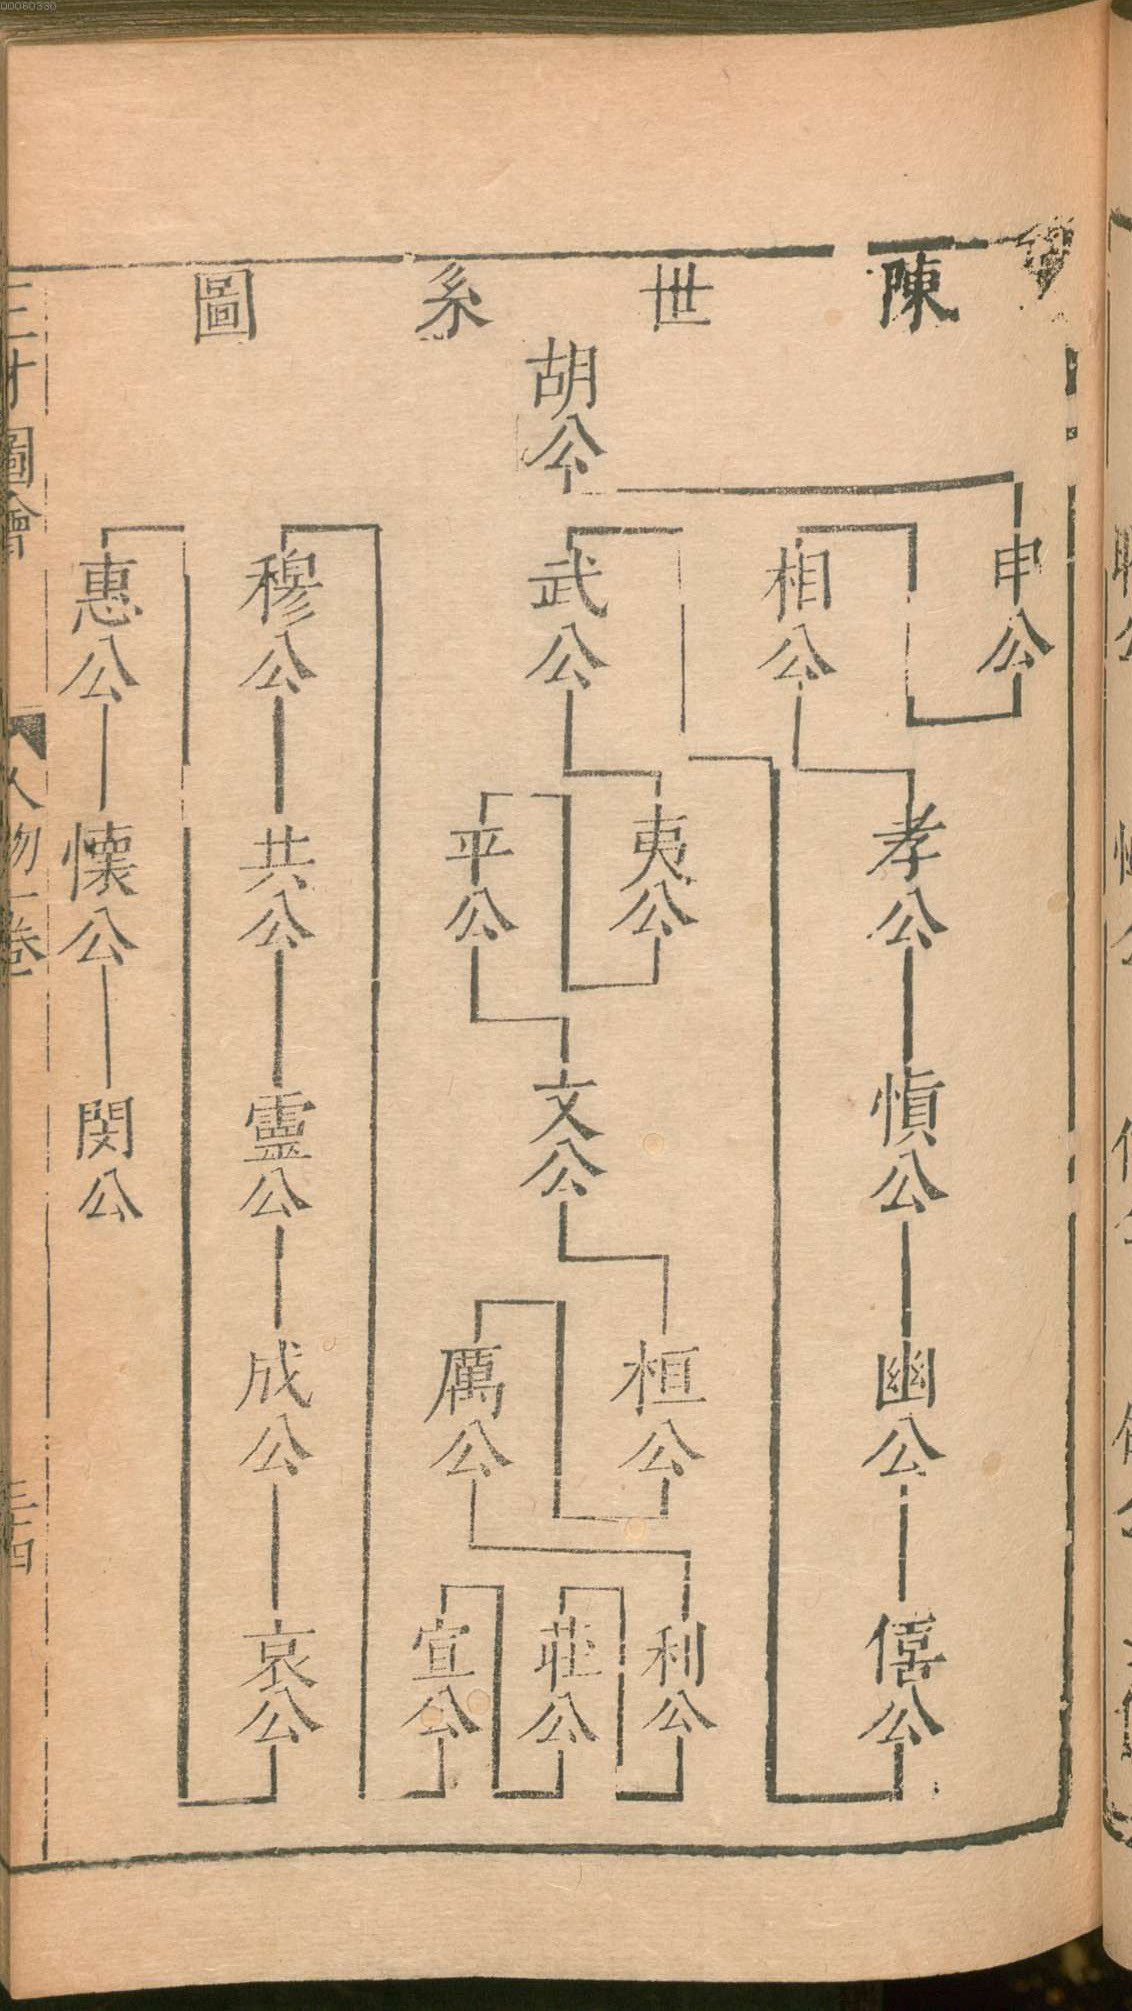 00060330
陳世系圖
胡公
申公
相公
孝公
慎公
幽公
僖公
武公
夷公
平公
文公
桓公
厲公
利公
莊公
宣公
穆公
共公
靈公
成公
哀公
惠公
懷公
閔公
三才圖會
人物一卷
三四